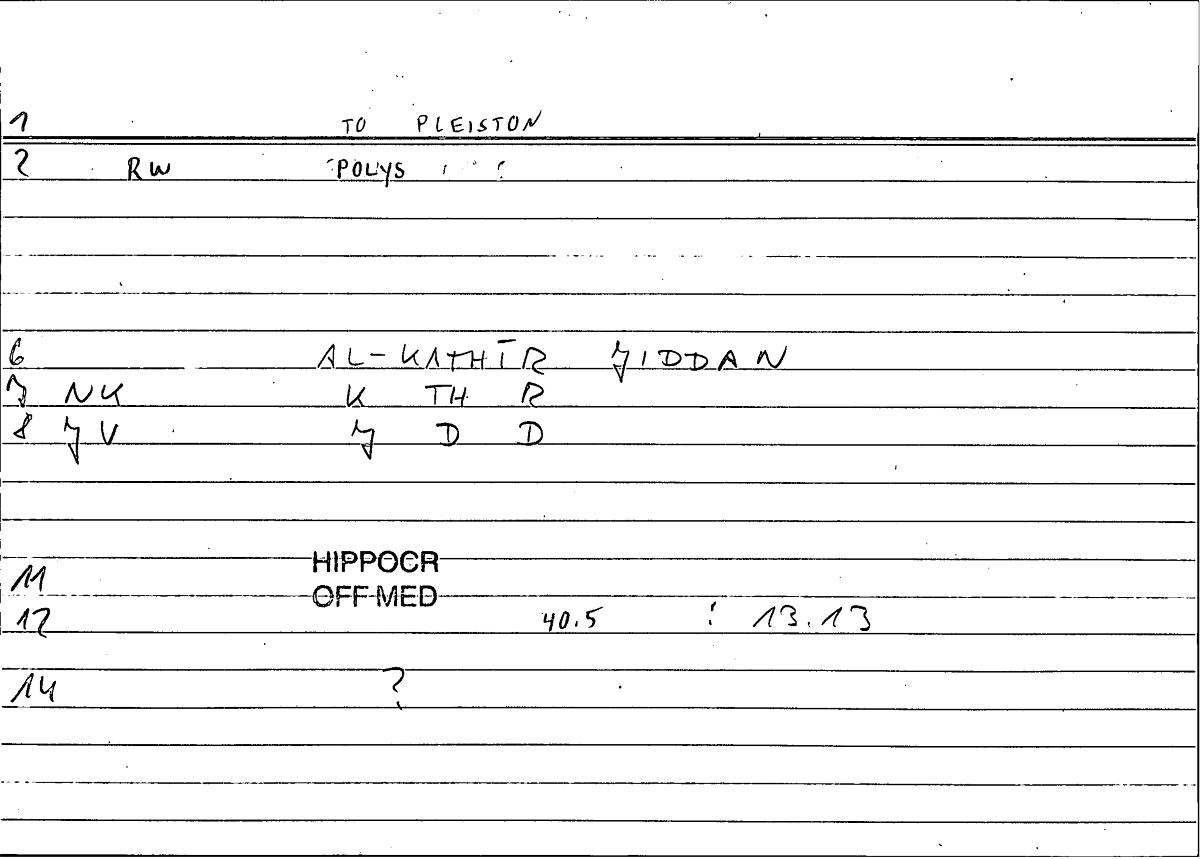 1 TO PLEISTON
2 RW POLYS
6 AL-KATHĪR JIDDAN
7 NK K TH R
8 JV J D D
11 HIPPOCR
OFF-MED
12 40.5 : 13.13
14 ?